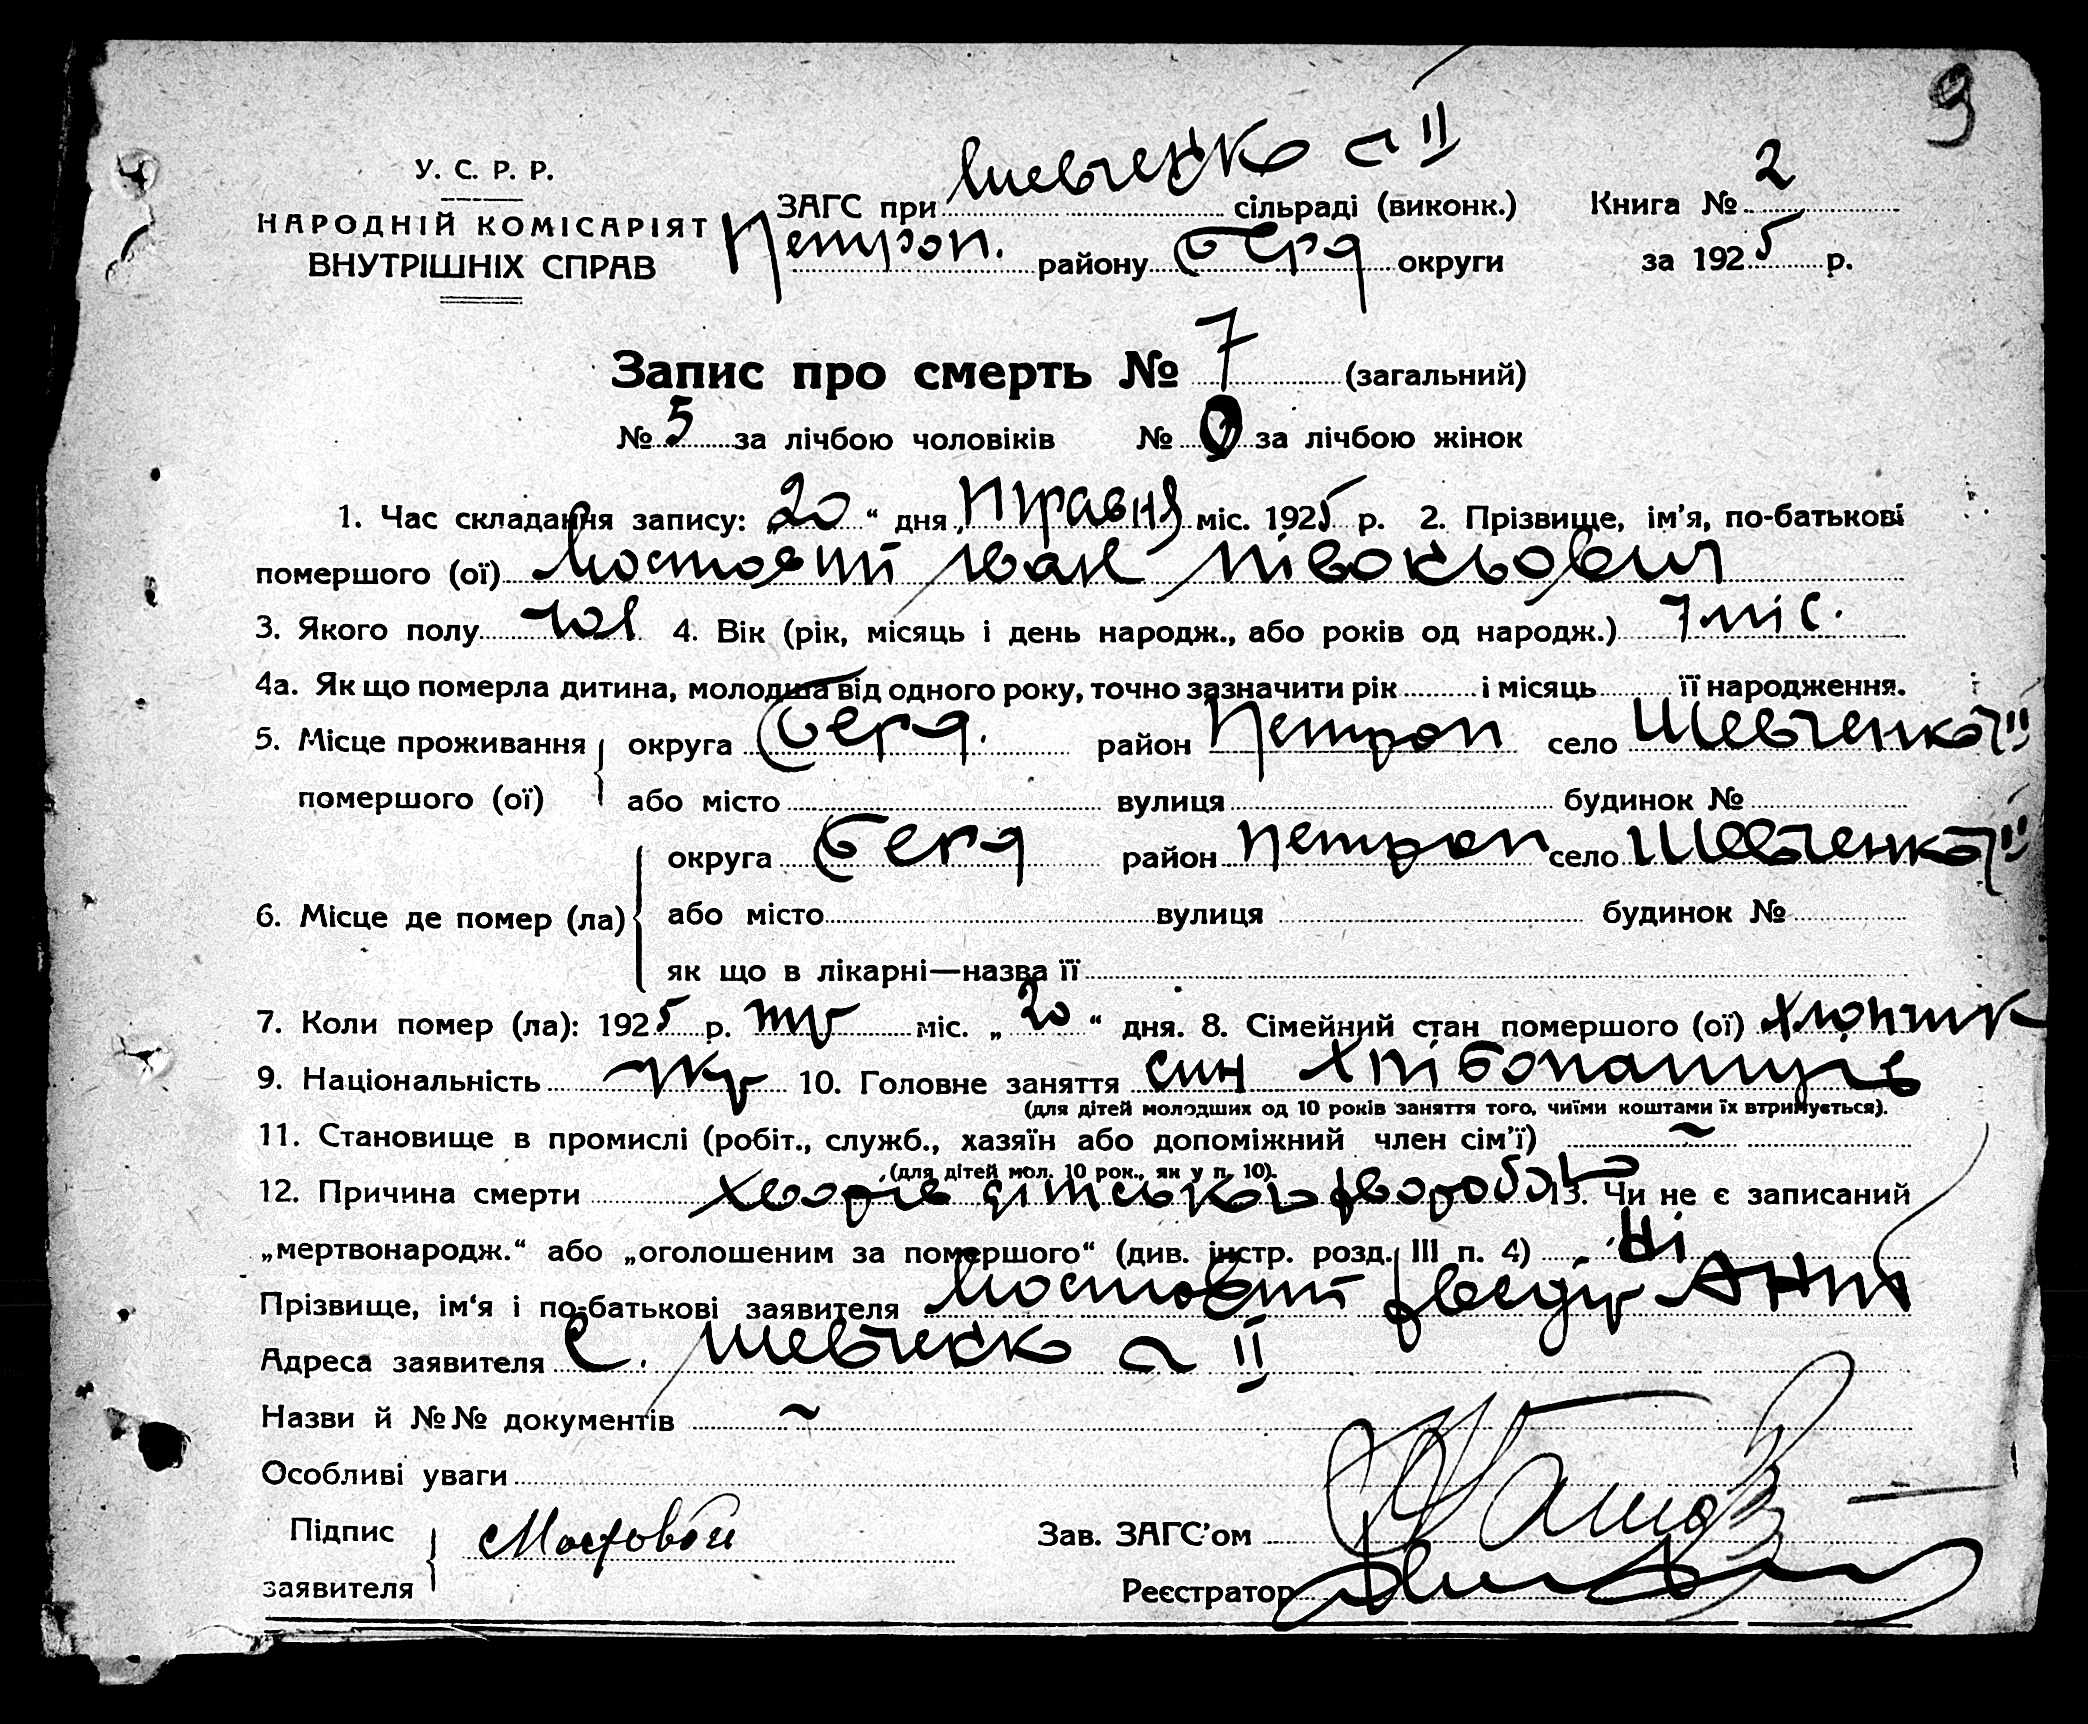 9
У. С. Р. Р.
НАРОДНІЙ КОМІСАРІЯТ
ВНУТРІШНІХ СПРАВ
ЗАГС при Шевченко II сільраді (виконк.)
Петроп. району Берд округи
Книга № 2
за 1925 р.
Запис про смерть № 7 (загальний)
№ 5 за лічбою чоловіків № 0 за лічбою жінок
1. Час складання запису: „20“ дня Травня міс. 1925 р. 2. Прізвище, ім’я, по-батькові
помершого (ої) Мостовий Іван
3. Якого полу чол 4. Вік (рік, місяць і день народж., або років од народж.) 7 міс.
4а. Як що померла дитина, молодша від одного року, точно зазначити рік і місяць її народження.
5. Місце проживання помершого (ої) округа Берд. район Петроп село Шевченко II
або місто вулиця будинок №
6. Місце де помер (ла) округа Берд район Петроп село Шевченко II
або місто вулиця будинок №
як що в лікарні—назва її
7. Коли помер (ла): 1925 р. тр міс. „20“ дня. 8. Сімейний стан помершого (ої) хлопчик
9. Національність укр 10. Головне заняття син хлібопашця
(для дітей молодших од 10 років заняття того, чиїми коштами їх втримується).
11. Становище в промислі (робіт., служб., хазяїн або допоміжний член сім’ї) ~
(для дітей мол. 10 рок., як у п. 10).
12. Причина смерти хворів дітської хворобой 13. Чи не є записаний
„мертвонародж.“ або „оголошеним за помершого“ (див. інстр. розд. III п. 4) Ні
Прізвище, ім‘я і по-батькові заявителя Мостовий
Адреса заявителя с. Шевченко II
Назви й №№ документів ~
Особливі уваги
Підпис заявителя Мостовой
Зав. ЗАГС’ом
Реєстратор